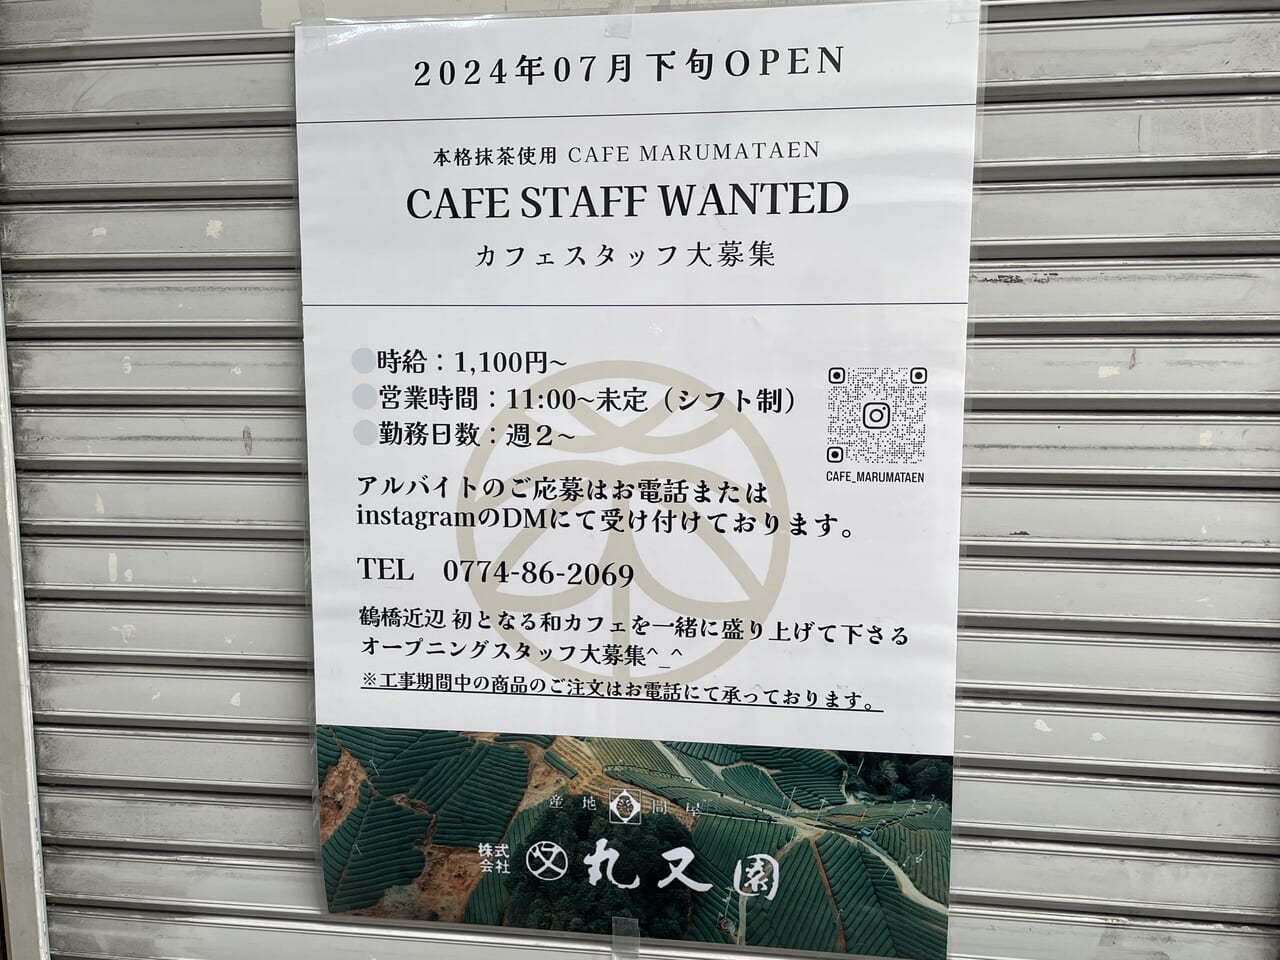 2024年07月下旬OPEN
本格抹茶使用 CAFE MARUMATAEN
CAFE STAFF WANTED
カフェスタッフ大募集
時給：1,100円~
営業時間：11:00~未定（シフト制）
勤務日数：週２~
CAFE_MARUMATAEN
アルバイトのご応募はお電話または
instagramのDMにて受け付けております。
TEL 0774-86-2069
鶴橋近辺 初となる和カフェを一緒に盛り上げて下さる
オープニングスタッフ大募集^_^
※工事期間中の商品のご注文はお電話にて承っております。
産地 茶 問屋
株式会社 丸又園